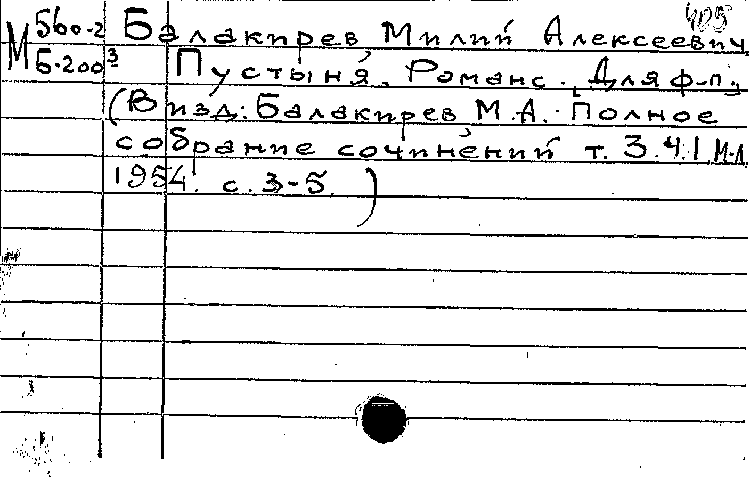 405
М 560-2 Балакирев, Милий Алексеевич
Б-200³ Пустыня. Романс. Для ф-п.
(В изд: Балакирев М.А. Полное
собрание сочинений т. 3. ч. 1. М-Л
1954. с. 3-5.)